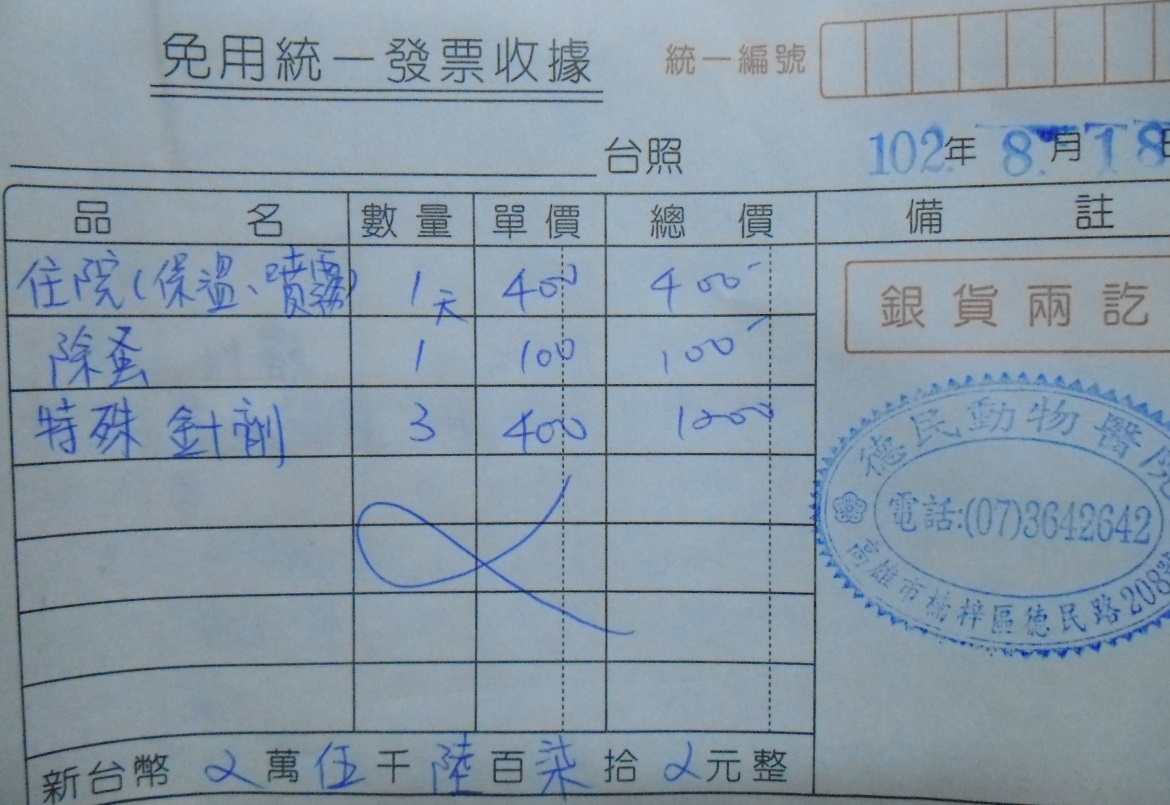 免用統一發票收據 統一編號
台照 102年 8月 18日
品名 數量 單價 總價 備註
住院(保溫、噴霧) 1天 400 400
除蚤 1 100 100
特殊針劑 3 400 1200
銀貨兩訖
德民動物醫院
電話:(07)3642642
高雄市楠梓區德民路208號
新台幣 萬伍千陸百柒拾 元整